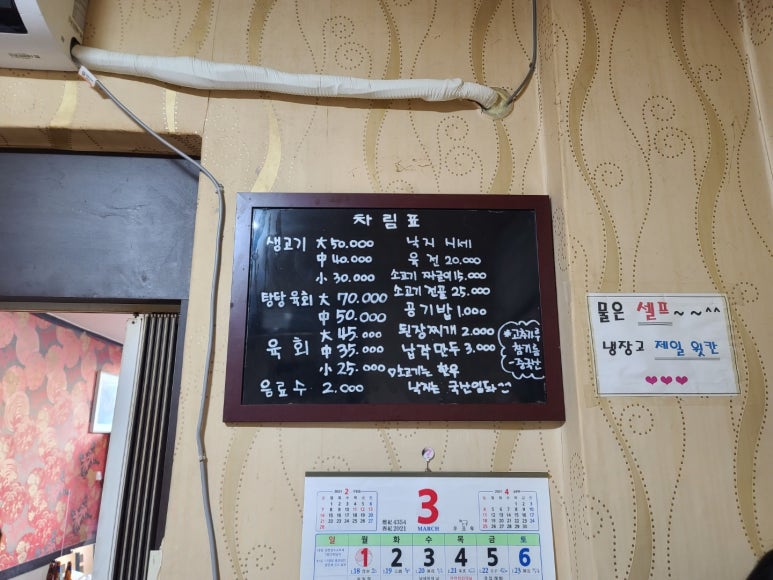 차림표
생고기 大 50.000
中 40.000
小 30.000
탕탕육회 大 70.000
中 50.000
육회 大 45.000
中 35.000
小 25.000
음료수 2.000
낙지 시세
육전 20.000
소고기 짜글이 15.000
소고기 전골 25.000
공기밥 1.000
된장찌개 2.000
납작만두 3.000
♡소고기는 한우
낙지는 국산입니다
*고춧가루
참기름
-중국산
물은 셀프~~^^
냉장고 제일 윗칸
♥♥♥
2021 2
3
MARCH
4354
2021
2021 4
일 월 화 수 목 금 토
1 2 3 4 5 6